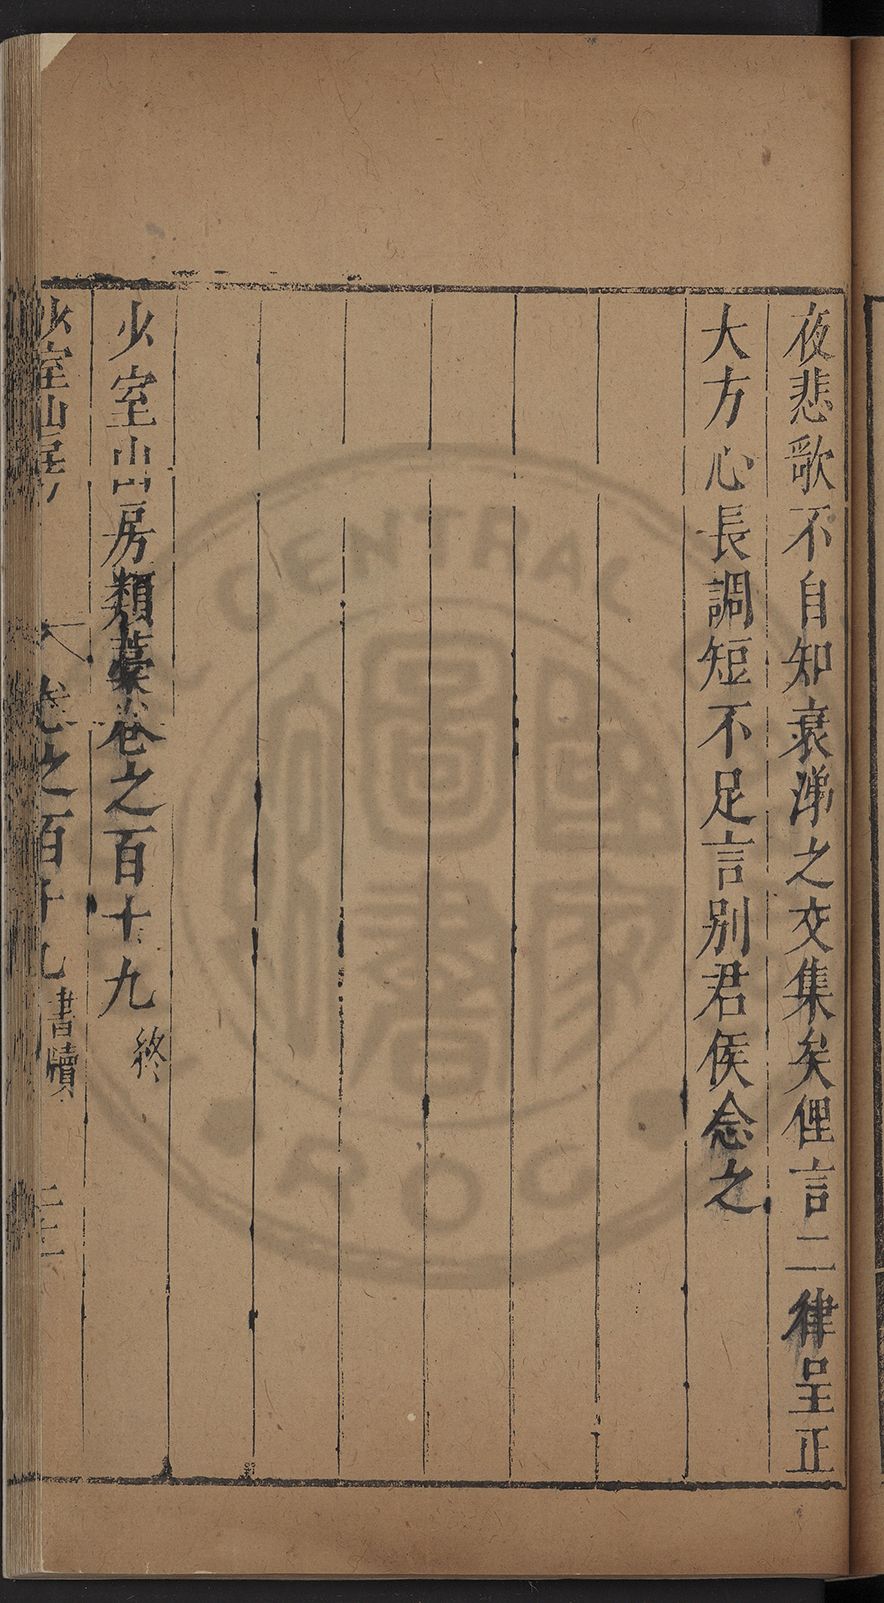 夜悲歌不自知衰涕之交集矣俚言二律呈正
大方心長調短不足言別君侯念之
少室山房類藁卷之百十九終
少室山房
卷之百十九 書牘 二十二
CENTRAL
ROC
國家圖書